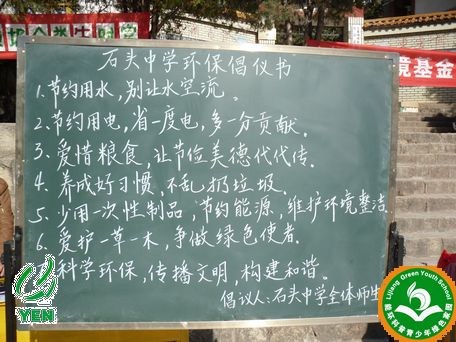 石头中学环保倡仪书
1.节约用水,别让水空流。
2.节约用电,省一度电,多一分贡献.
3.爱惜粮食,让节俭美德代代传.
4.养成好习惯,不乱扔垃圾.
5.少用一次性制品,节约能源,维护环境整洁.
6.爱护一草一木,争做绿色使者.
科学环保,传播文明,构建和谐.
倡议人:石头中学全体师生
境基金
YEN
Lijiang Green Youth School